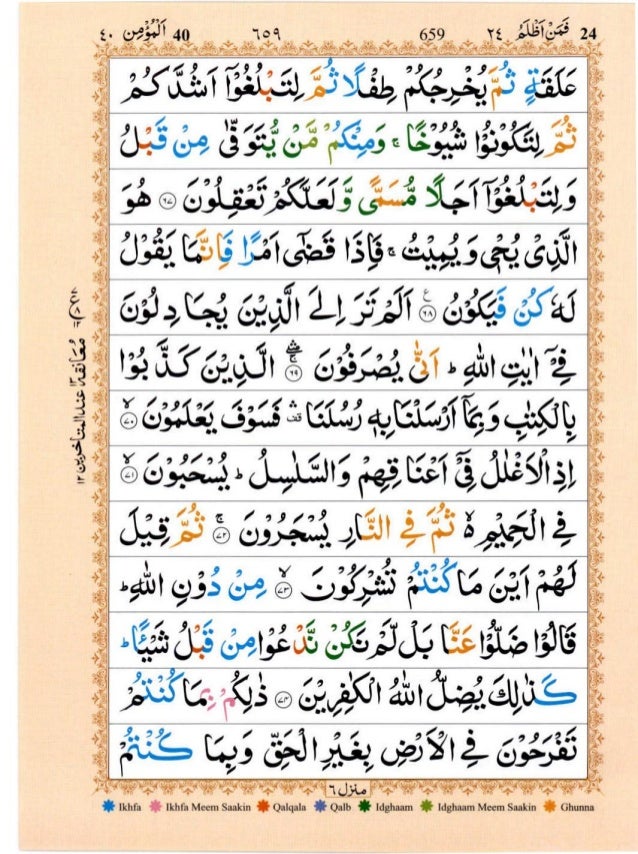 ٤٠ اَلْمُؤْمِن 40 ٦٥٩ 659 فَمَنْ اَظْلَمُ ٢٤ 24
عَلَقَةٍ ثُمَّ يُخْرِجُكُمْ طِفْلًا ثُمَّ لِتَبْلُغُوْۤا اَشُدَّكُمْ
ثُمَّ لِتَكُوْنُوْا شُيُوْخًا ۚ وَمِنْكُمْ مَّنْ يُّتَوَفّٰى مِنْ قَبْلُ
وَلِتَبْلُغُوْۤا اَجَلًا مُّسَمًّى وَّلَعَلَّكُمْ تَعْقِلُوْنَ ﴿٦٧﴾ هُوَ
الَّذِيْ يُحْيٖ وَيُمِيْتُ ۚ فَاِذَا قَضٰۤى اَمْرًا فَاِنَّمَا يَقُوْلُ
لَهٗ كُنْ فَيَكُوْنُ ﴿٦٨﴾ ع اَلَمْ تَرَ اِلَى الَّذِيْنَ يُجَادِلُوْنَ
فِيْۤ اٰيٰتِ اللّٰهِ ؕ اَنّٰى يُصْرَفُوْنَ ﴿٦٩﴾ الَّذِيْنَ كَذَّبُوْا
بِالْكِتٰبِ وَبِمَاۤ اَرْسَلْنَا بِهٖ رُسُلَنَا ۛ فَسَوْفَ يَعْلَمُوْنَ ﴿٧٠﴾
اِذِ الْاَغْلٰلُ فِيْۤ اَعْنَاقِهِمْ وَالسَّلٰسِلُ ؕ يُسْحَبُوْنَ ﴿٧١﴾
فِي الْحَمِيْمِ ۙ ثُمَّ فِي النَّارِ يُسْجَرُوْنَ ﴿٧٢﴾ ثُمَّ قِيْلَ
لَهُمْ اَيْنَ مَا كُنْتُمْ تُشْرِكُوْنَ ﴿٧٣﴾ مِنْ دُوْنِ اللّٰهِ ؕ
قَالُوْا ضَلُّوْا عَنَّا بَلْ لَّمْ نَكُنْ نَّدْعُوْا مِنْ قَبْلُ شَيْـًٔا ؕ
كَذٰلِكَ يُضِلُّ اللّٰهُ الْكٰفِرِيْنَ ﴿٧٤﴾ ذٰلِكُمْ بِمَا كُنْتُمْ
تَفْرَحُوْنَ فِي الْاَرْضِ بِغَيْرِ الْحَقِّ وَبِمَا كُنْتُمْ
منزل ٦
معانقة عند المتاخرين ١٢
Ikhfa Ikhfa Meem Saakin Qalqala Qalb Idghaam Idghaam Meem Saakin Ghunna